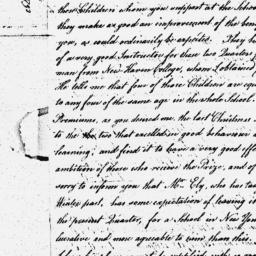 those Children whom you support at the School
they make as good an improvement of the bene
you, as could ordinarily be expected. They h
of a very good Instructor for these two Quarters
man from New Haven College, whom I obtained
He tells me that four of those Children are equ
to any four of the same age in the whole School.
Premiums, as you desired me, the last Christmas
to the two that excelled in good behaviour
learning; and find it to have a very good eff
ambition of those who receive the Prize, and of
sorry to inform you that Mr. Ely, who has tau
Winter past, has some expectation of leaving
the present Quarter, for a School in New Yor
lucrative and more agreeable to him than this.